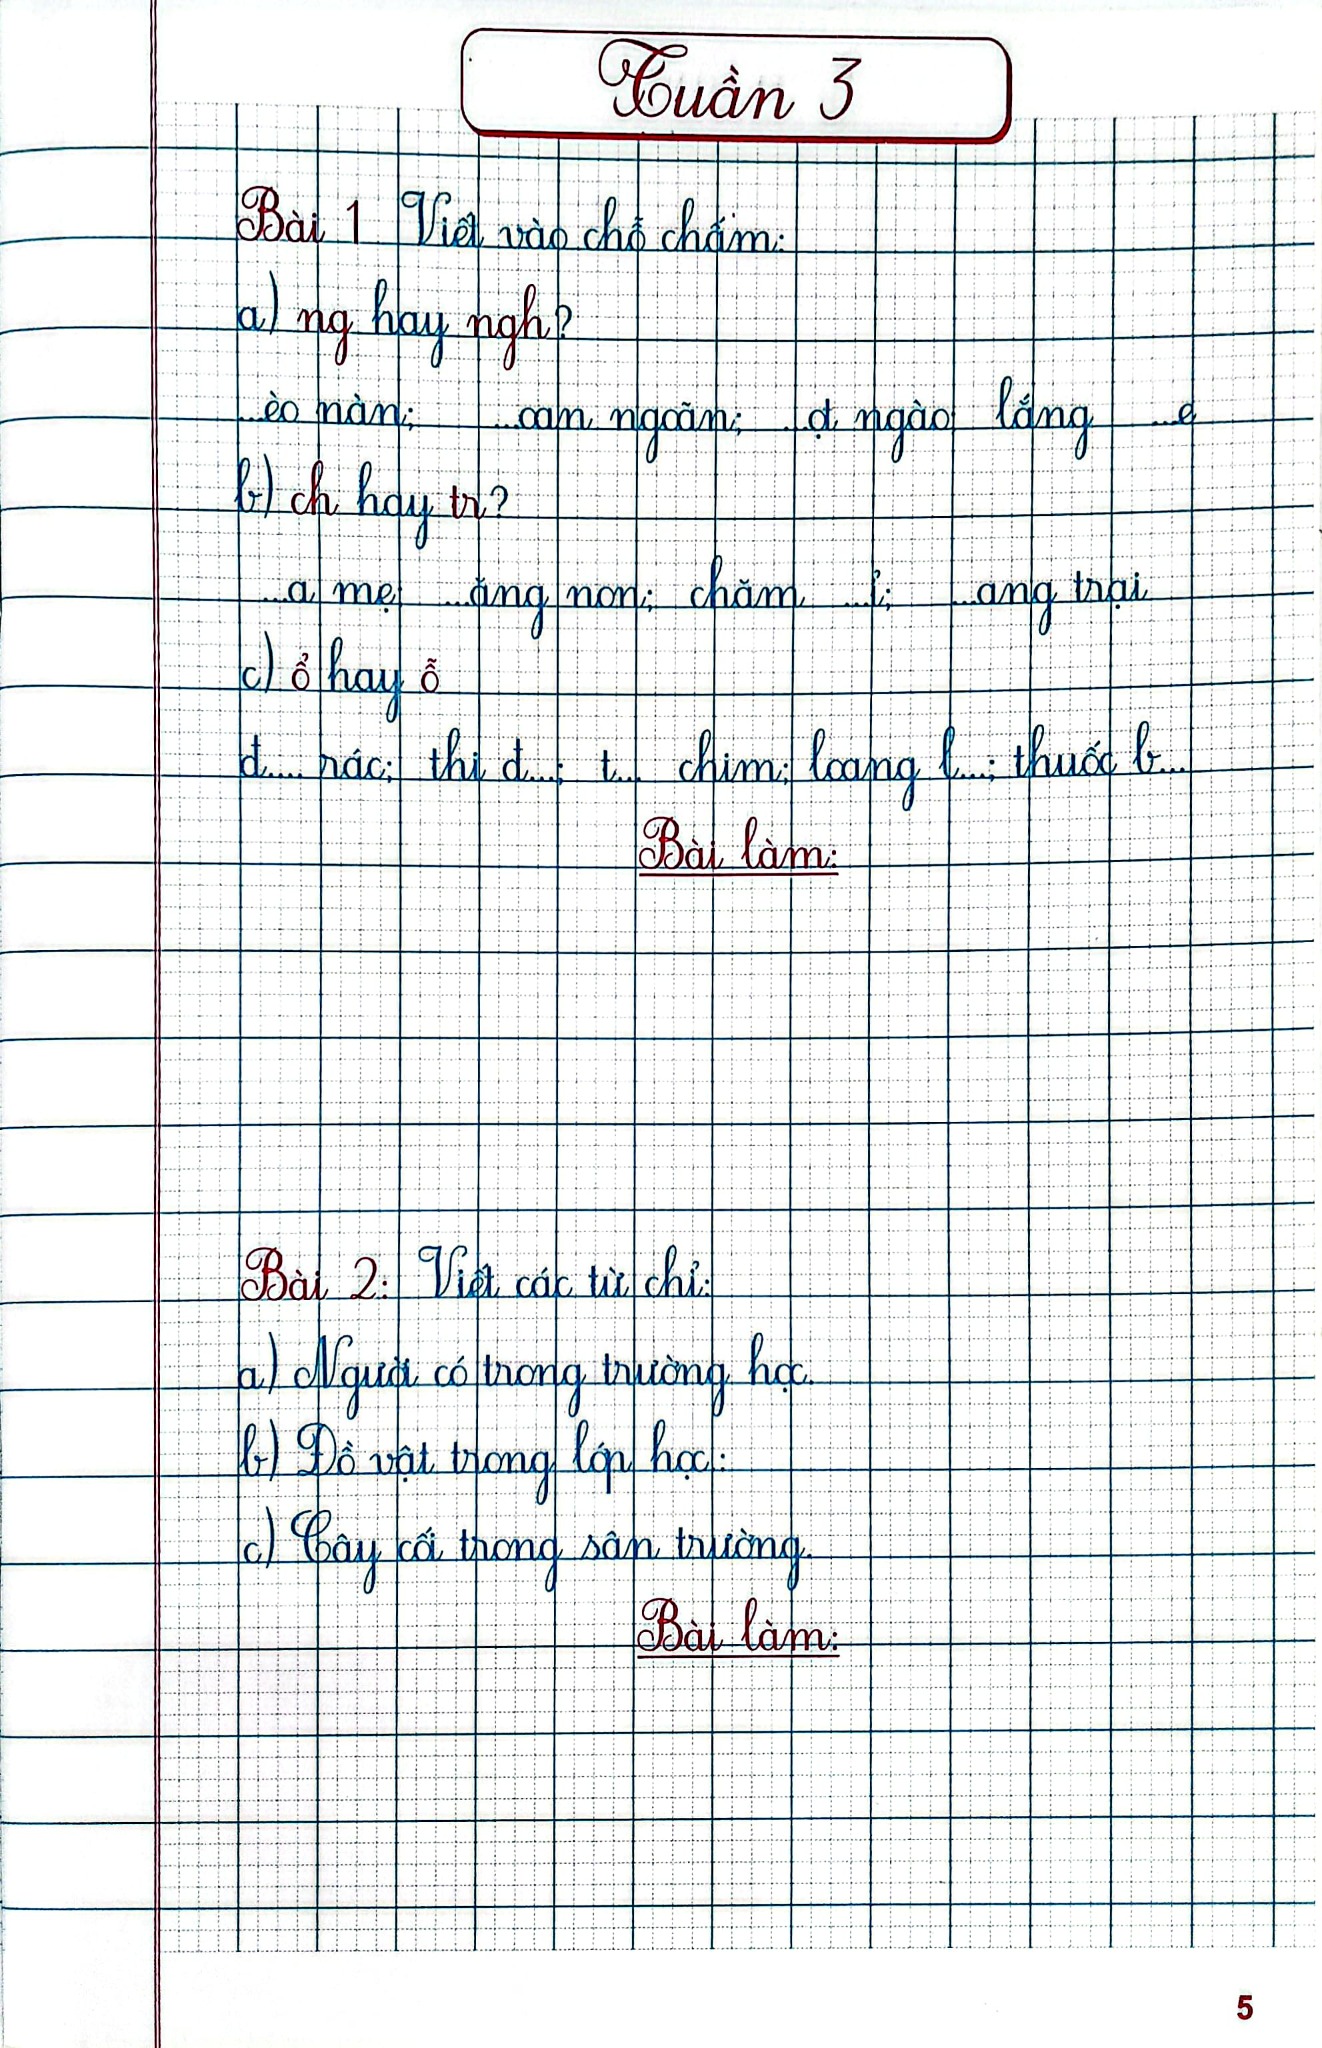 Tuần 3
Bài 1 Viết vào chỗ chấm:
a) ng hay ngh?
...èo nàn; ...oan ngoãn; ...ọt ngào lắng ...e
b) ch hay tr?
...a mẹ ...ăng non; chăm ...ỉ; ...ang trại
c) ổ hay ỗ
đ.... rác; thi đ...; t... chim; loang l...; thuốc b...
Bài làm:
Bài 2: Viết các từ chỉ:
a) Người có trong trường học.
b) Đồ vật trong lớp học:
c) Cây cối trong sân trường.
Bài làm:
5